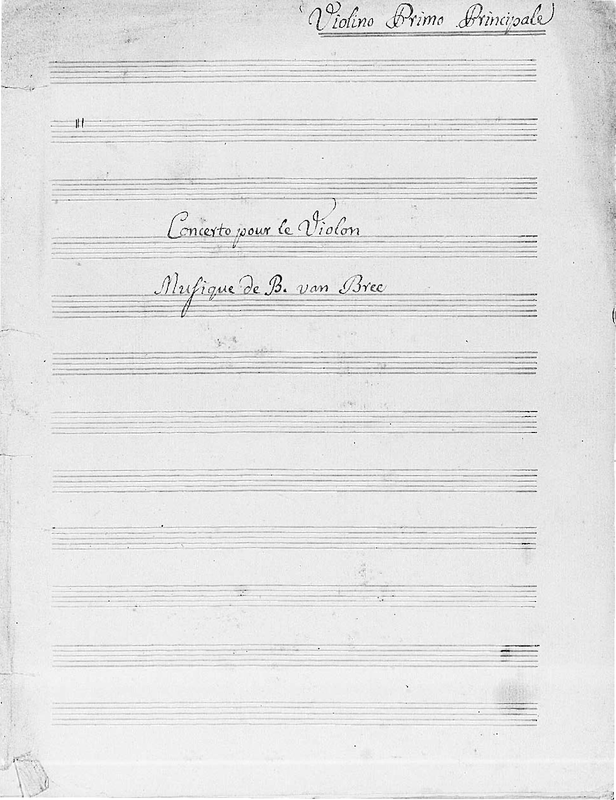 Violino Primo Principale
Concerto pour le Violon
Musique de B. van Bree